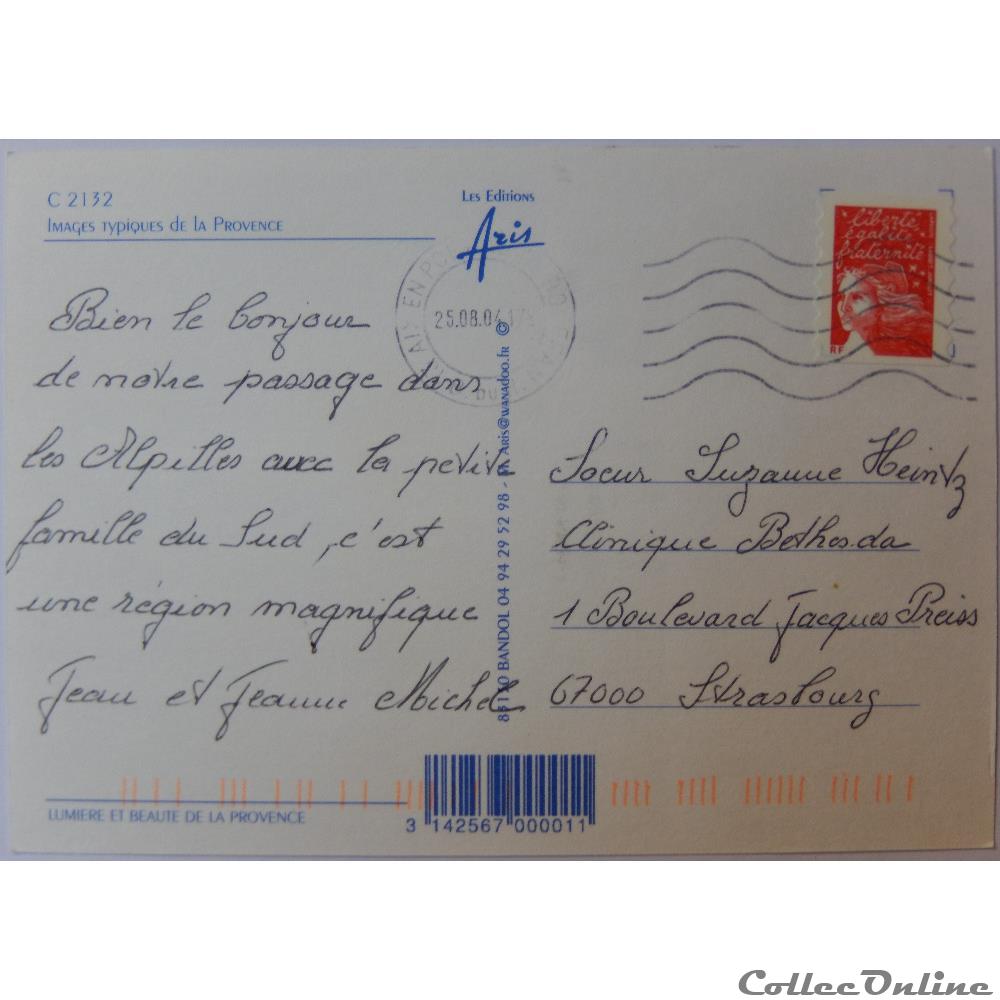 C 2132
Images typiques de la Provence
Les Editions
Aris
25.08.04
liberté
égalité
fraternité
RF
Bien le bonjour
de notre passage dans
les Alpilles avec la petite
famille du Sud, c'est
une région magnifique
Jean et Jeanne Michel
BANDOL 04 94 29 52 98 - Aris@wanadoo.fr ©
Soeur Suzanne Heintz
Clinique Bethesda
1 Boulevard Jacques Preiss
67000 Strasbourg
LUMIERE ET BEAUTE DE LA PROVENCE
3 142567 000011
CollecOnline